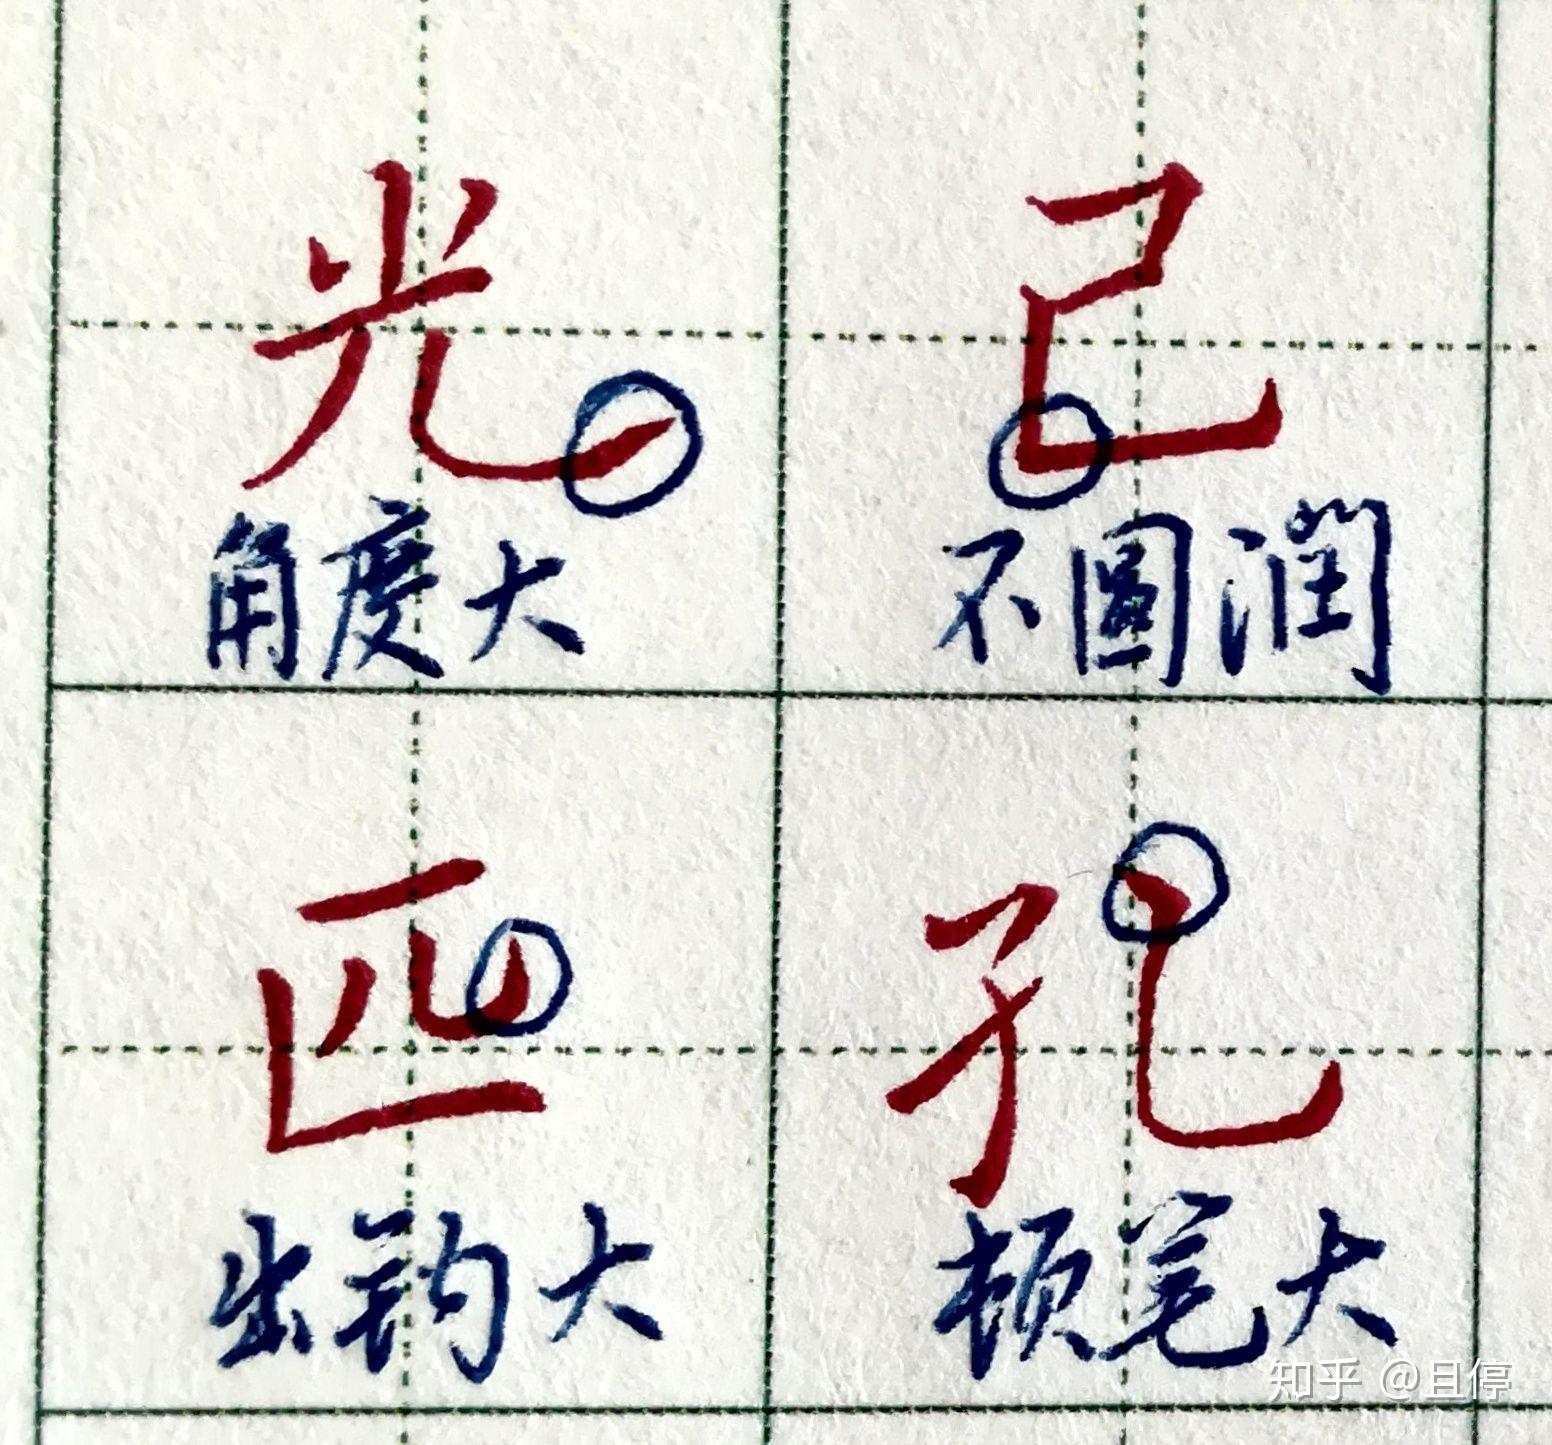 光 己
角度大 不圓潤
匹 孔
出钩大 顿笔大
知乎 @且停